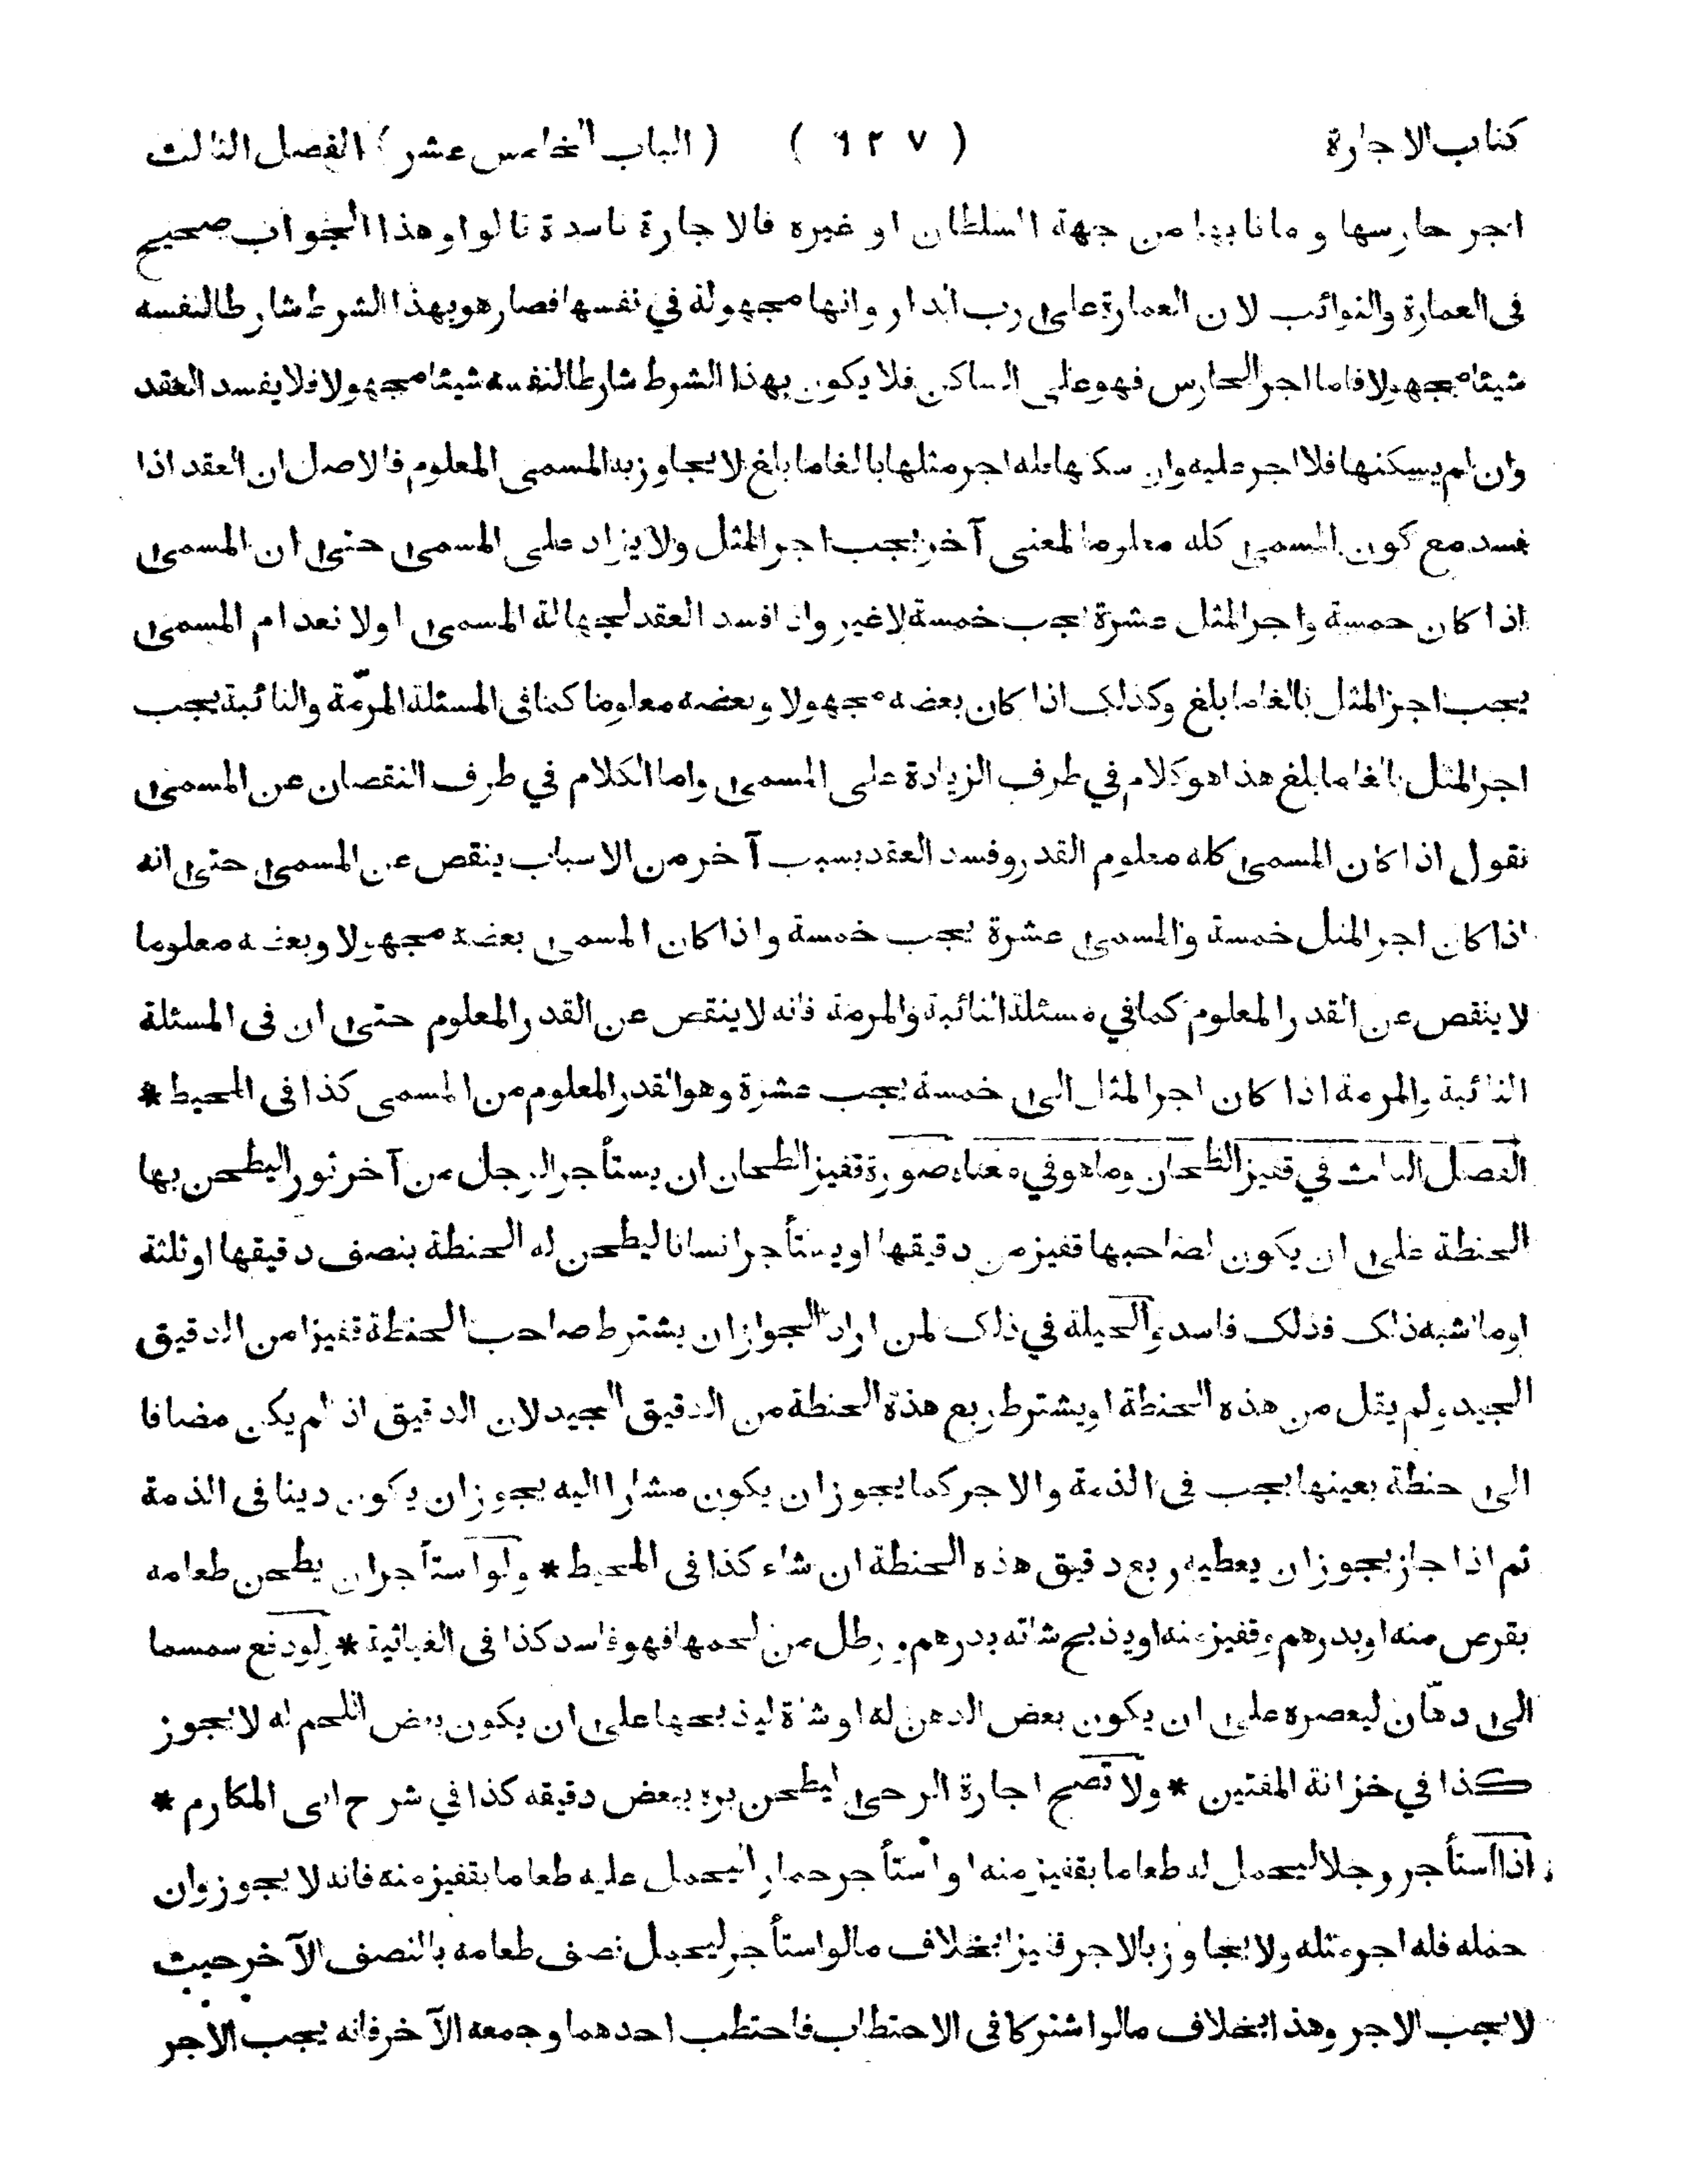 كتاب الاجارة ( ٦٢٧ ) ( الباب الخامس عشر ) الفصل الثالث
اجر حارسها و ما نابها من جهة السلطان او غيره فالاجارة فاسدة قالوا وهذا الجواب صحيح
فى العمارة والنوائب لان العمارة على رب الدار وانها مجهولة في نفسها فصار هو بهذا الشرط شارطا لنفسه
شيئا مجهولا فاما اجر الحارس فهو على الساكن فلا يكون بهذا الشرط شارطا لنفسه شيئا مجهولا فلا يفسد العقد
وان لم يسكنها فلا اجر عليه وان سكنها فله اجر مثلها بالغا ما بلغ لا يجاوز به المسمى المعلوم فالاصل ان العقد اذا
فسد مع كون المسمى كله معلوما لمعنى آخر يجب اجر المثل ولا يزاد على المسمى حتى ان المسمى
اذا كان خمسة واجر المثل عشرة يجب خمسة لا غير واذا فسد العقد لجهالة المسمى او لانعدام المسمى
يجب اجر المثل بالغا ما بلغ وكذلك اذا كان بعضه مجهولا وبعضه معلوما كما فى المسئلة المرمّة والنائبة يجب
اجر المثل بالغا ما بلغ هذا هو كلام في طرف الزيادة على المسمى واما الكلام في طرف النقصان عن المسمى
نقول اذا كان المسمى كله معلوم القدر وفسد العقد بسبب آخر من الاسباب ينقص عن المسمى حتى انه
اذا كان اجر المثل خمسة والمسمى عشرة يجب خمسة واذا كان المسمى بعضه مجهولا وبعضه معلوما
لا ينقص عن القدر المعلوم كما في مسئلة النائبة والمرمة فانه لا ينقص عن القدر المعلوم حتى ان فى المسئلة
النائبة والمرمة اذا كان اجر المثل الى خمسة يجب عشرة وهو القدر المعلوم من المسمى كذا فى المحيط *
الفصل الثالث في قفيز الطحان وما هو في معناه صورة قفيز الطحان ان يستأجر الرجل من آخر ثورا ليطحن بها
الحنطة على ان يكون لصاحبها قفيز من دقيقها او يستأجر انسانا ليطحن له الحنطة بنصف دقيقها او ثلثة
او ما اشبه ذلك فذلك فاسد والحيلة في ذلك لمن اراد الجواز ان يشترط صاحب الحنطة قفيزا من الدقيق
الجيد ولم يقل من هذه الحنطة او يشترط ربع هذه الحنطة من الدقيق الجيد لان الدقيق اذا لم يكن مضافا
الى حنطة بعينها يجب فى الذمة والاجر كما يجوز ان يكون مشارا اليه يجوز ان يكون دينا فى الذمة
ثم اذا جاز يجوز ان يعطيه ربع دقيق هذه الحنطة ان شاء كذا فى المحيط * ولو استأجر ان يطحن طعامه
بقرص منه او بدرهم وقفيز منه او يذبح شاته بدرهم ورطل من لحمها فهو فاسد كذا فى الغياثية * ولو دفع سمسما
الى دهّان ليعصره على ان يكون بعض الدهن له او شاة ليذبحها على ان يكون بعض اللحم له لا يجوز
كذا في خزانة المفتين * ولا تصح اجارة الرحى ليطحن بره ببعض دقيقه كذا في شرح ابى المكارم *
اذا استأجر رجلا ليحمل له طعاما بقفيز منه او استأجر حمارا ليحمل عليه طعاما بقفيز منه فانه لا يجوز وان
حمله فله اجر مثله ولا يجاوز بالاجر قفيزا بخلاف ما لو استأجر ليحمل نصف طعامه بالنصف الآخر حيث
لا يجب الاجر وهذا بخلاف ما لو اشتركا فى الاحتطاب فاحتطب احدهما وجمعه الآخر فانه يجب الاجر